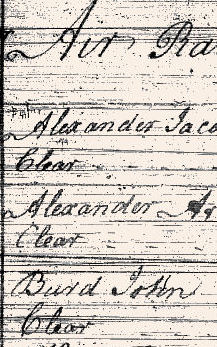 Air
Alexander Jaco
Clear
Alexander
Clear
Burd John
Clear